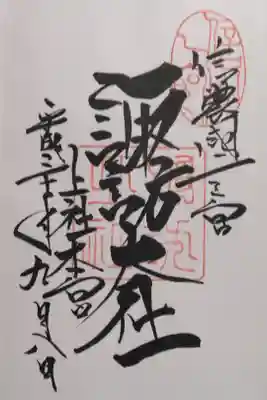 信濃國一之宮
諏訪大社
上社本宮
平成三十年九月八日